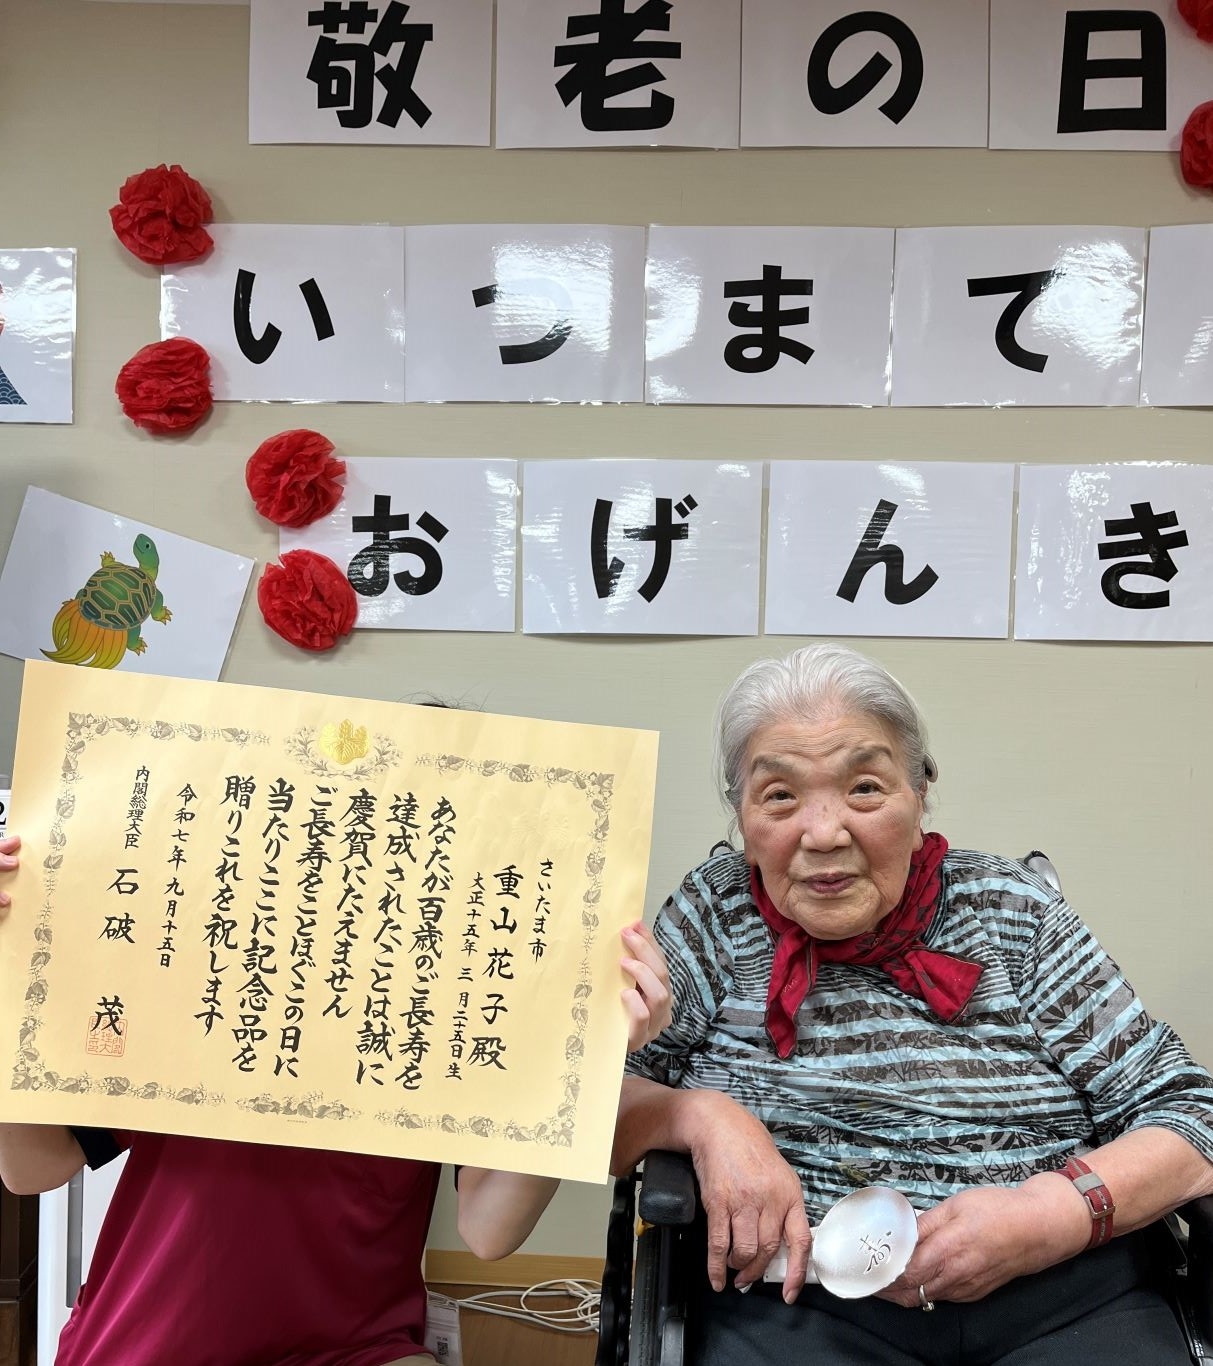 敬老の日
いつまで
おげんき
さいたま市
重山花子殿
大正十五年三月二十五日生
あなたが百歳のご長寿を
達成されたことは誠に
慶賀にたえません
ご長寿をことほぐこの日に
当たりここに記念品を
贈りこれを祝します
令和七年九月十五日
内閣総理大臣 石破 茂
寿